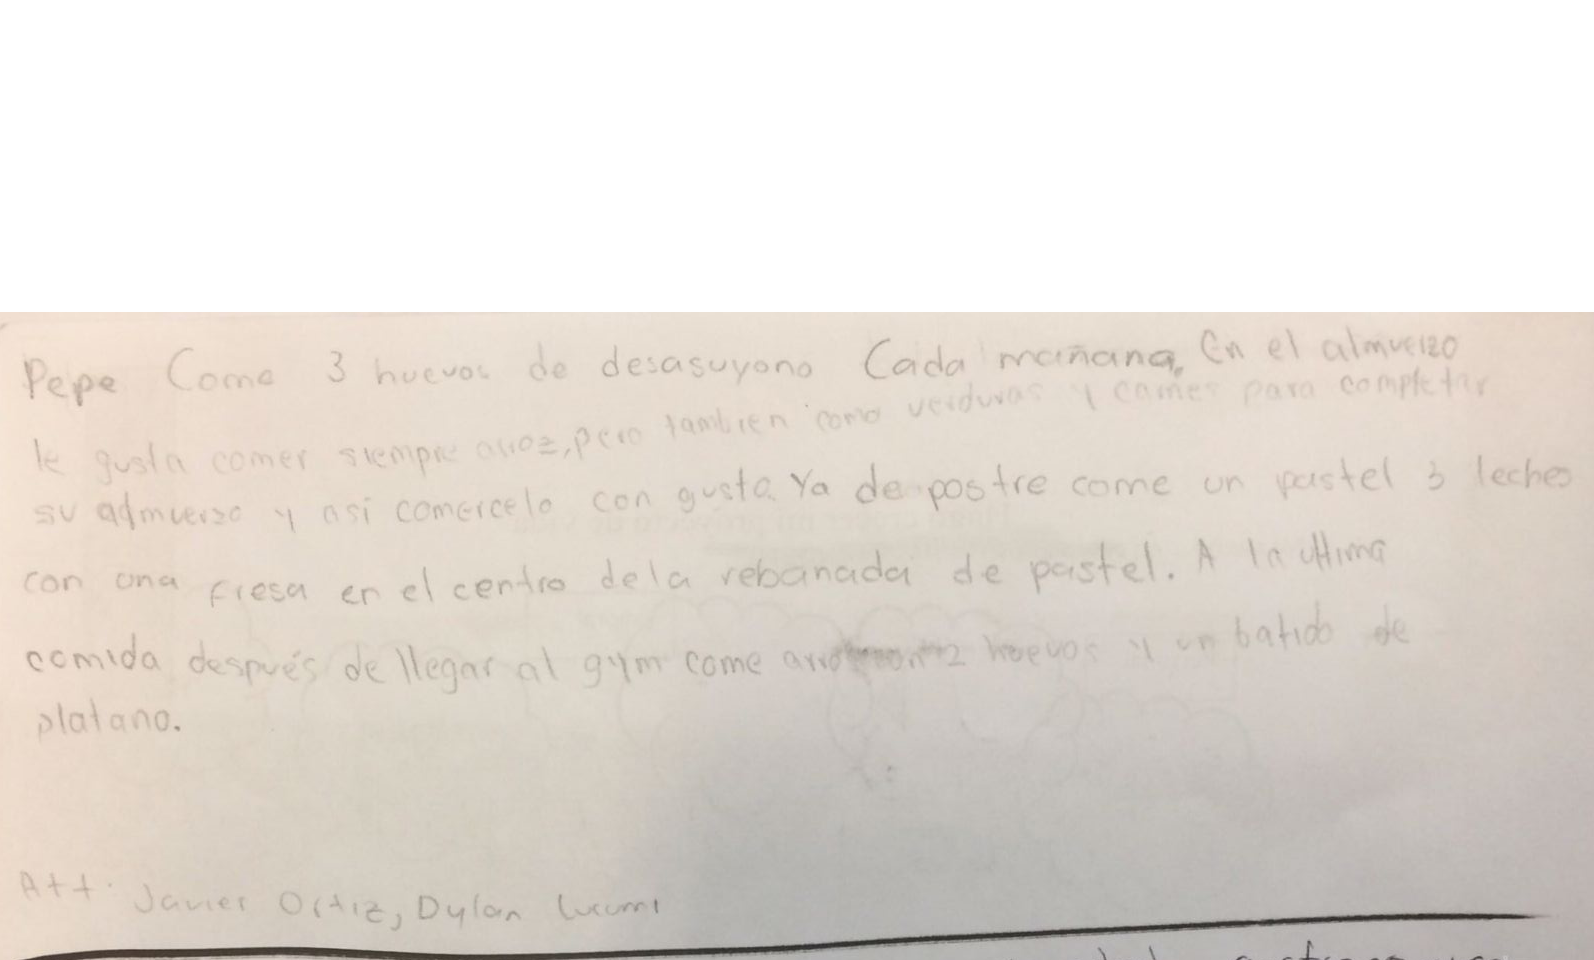 Pepe Come 3 huevos de desasuyono Cada mañana, En el almuerzo
le gusta comer siempre arroz, pero tambien come verduras y carnes para completar
su admuerzo y asi comercelo con gusto. Ya de postre come un pastel 3 leches
con una fresa en el centro dela rebanada de pastel. A la ultima
comida después de llegar al gym come 2 huevos y un batido de
platano.
Att: Javier Ortiz, Dylan Lucumi